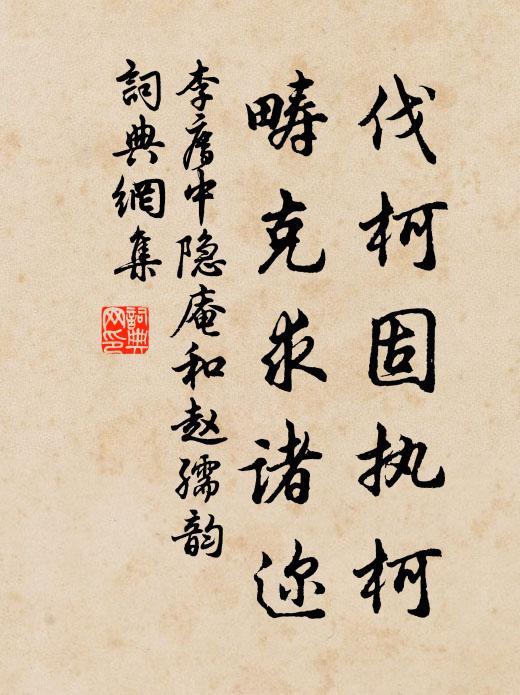 伐柯固执柯
畴克求诸迩
李廌中隐庵和赵孺韵
词典網集
詞典
网印